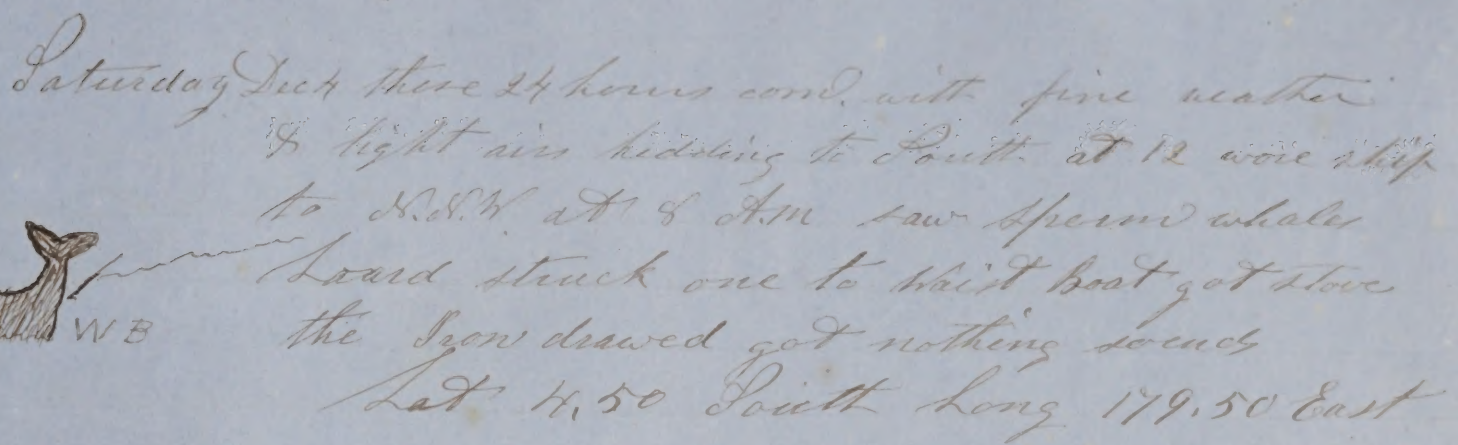 Saturday Dec 4 these 24 hours comd. with fine weather
& light airs hedding to South at 12 wore ship
to N.N.W at 8 A.M saw Sperm whales
Loard struck one to Waist Boat got stove
W B the Iron drawed got nothing
Lat 4,50 South Long 179.50 East